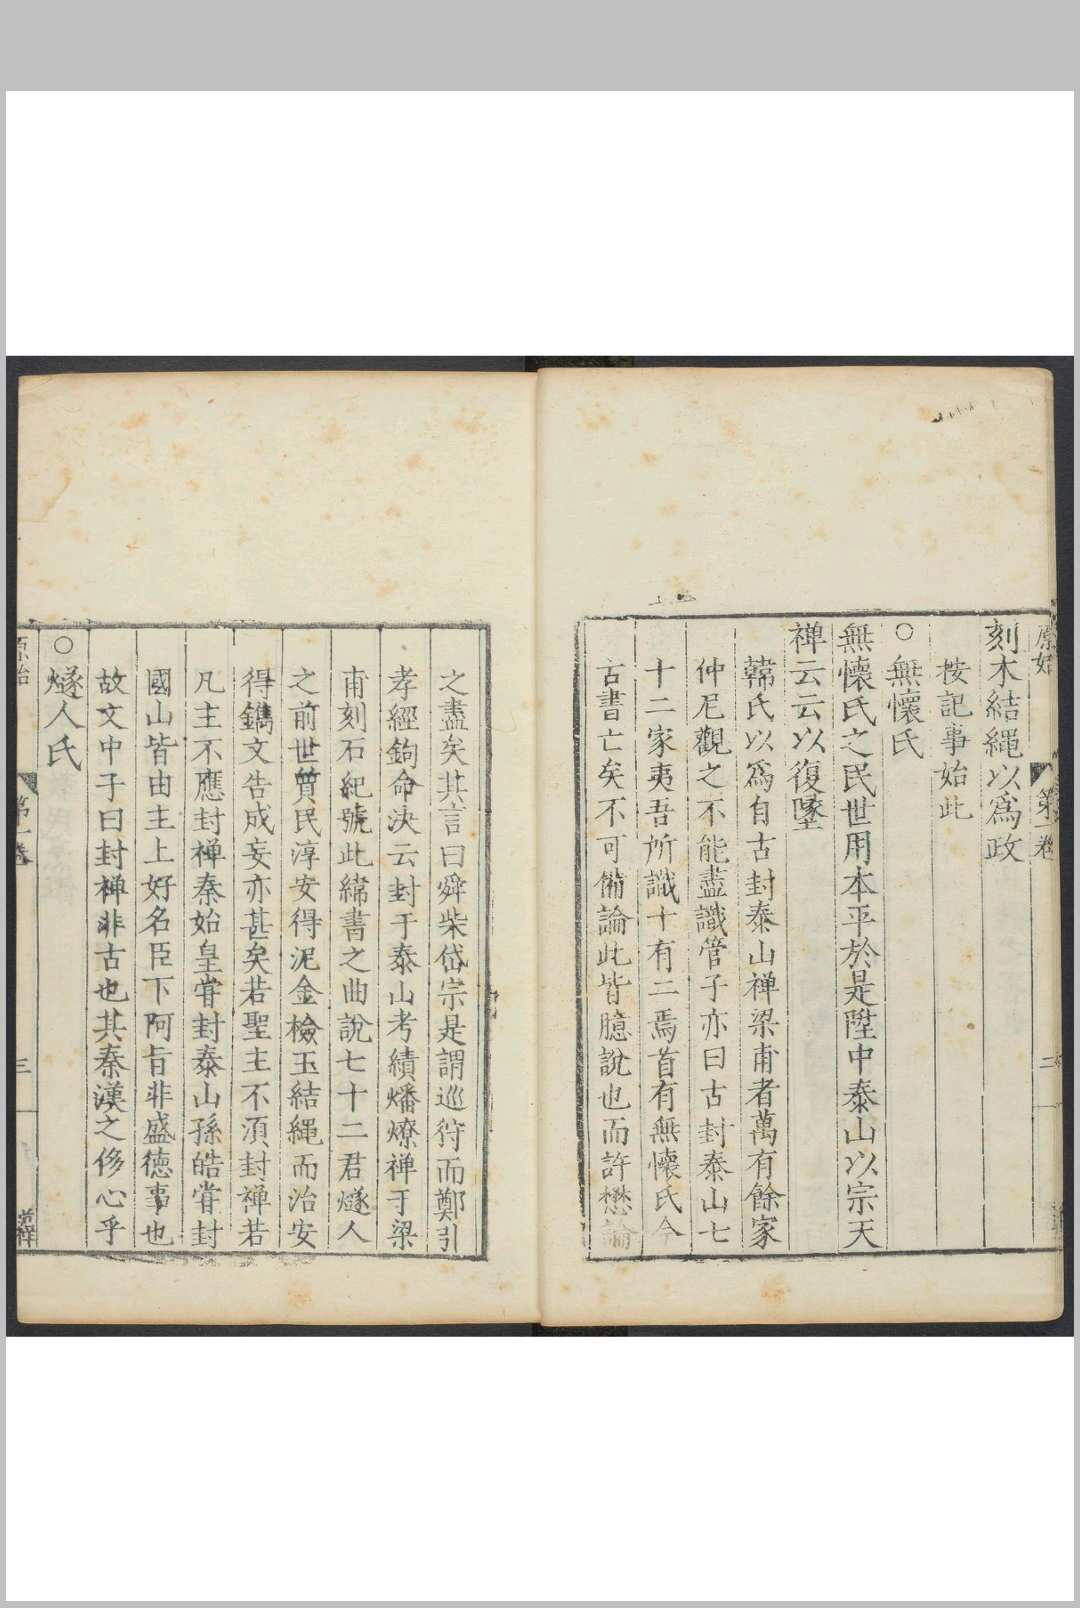 原始 第一卷 二
刻木結繩以爲政
按記事始此
○無懷氏
無懷氏之民世用本平於是陞中泰山以宗天
禪云云以復墜
韓氏以爲自古封泰山禅梁甫者萬有餘家
仲尼觀之不能盡識管子亦曰古封泰山七
十二家夷吾所識十有二焉首有無懷氏今
古書亡矣不可備論此皆臆說也而許懋論
之盡矣其言曰舜柴岱宗是謂巡狩而鄭引
孝經鉤命決云封于泰山考績燔燎禅于梁
甫刻石紀號此緯書之曲說七十二君燧人
之前世質民淳安得泥金檢玉結繩而治安
得鐫文告成妄亦甚矣若聖主不湏封禅若
凡主不應封禅秦始皇甞封泰山孫皓甞封
國山皆由主上好名臣下阿旨非盛德事也
故文中子曰封禅非古也其秦漢之侈心乎
○燧人氏
原始 第一卷 三